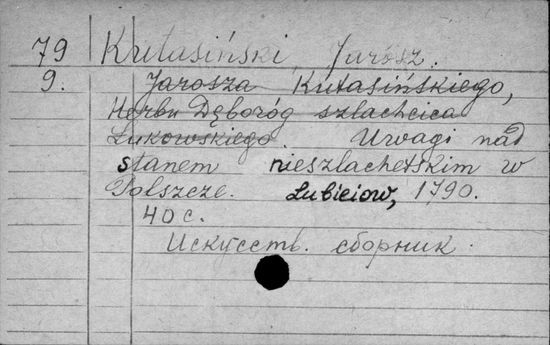 79 Kutasiński, Jarosz.
9. Jarosza Kutasińskiego,
Herbu Dęboróg szlachcica
Łukowskiego. Uwagi nad
stanem nieszlachetskim w
Polszcze. Łubieiow, 1790.
40 c.
Искусств. сборник.